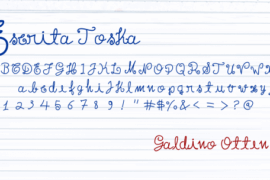 Escrita Toska
ABCDEFGHIJKLMNOPQRSTUVWX
abcdefghijklmnopqrstuvwxyz
1 2 3 4 5 6 7 8 9 ! " # $ % & < = > ? @
Galdino Otten